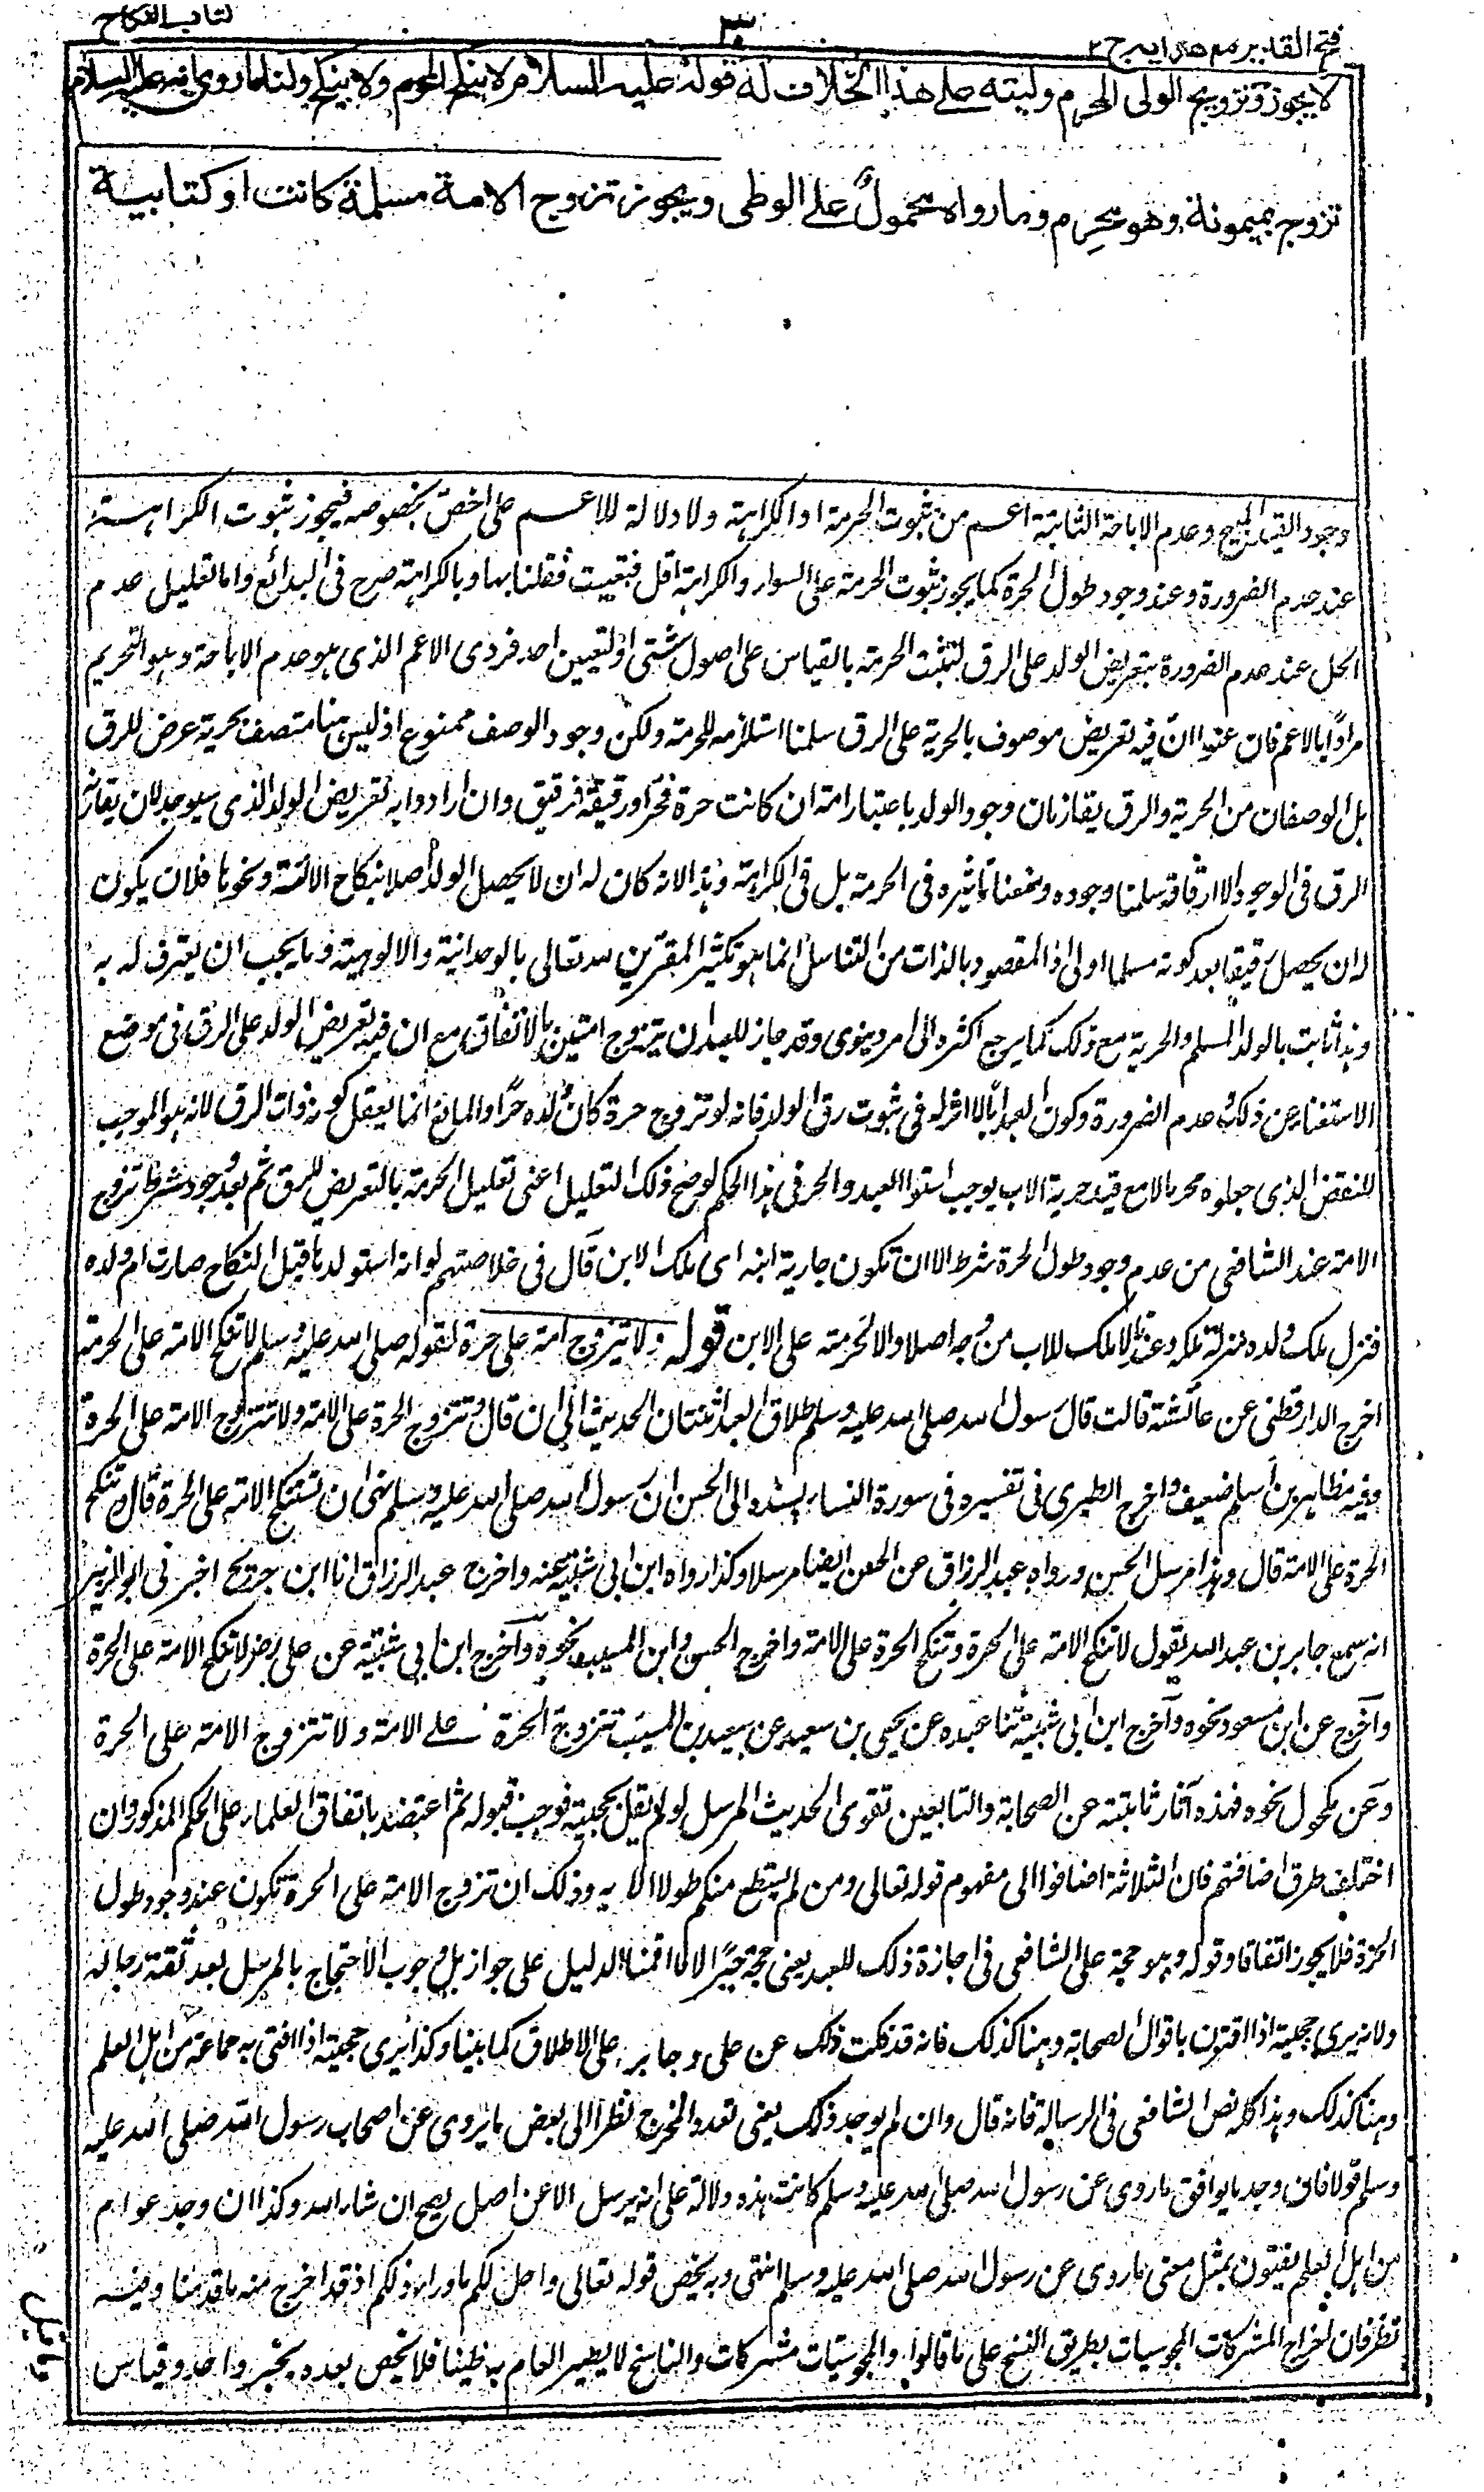 فتح القدير مع هدايه ج ٢
٣
كتاب النكاح
لا يجوز وتزويج الولي المحرم وليته على هذا الخلاف له قوله عليه السلام لا ينكح المحرم ولا ينكح ولنا ما روي انه عليه السلام
تزوج بميمونة وهو محرم وما رواه محمول على الوطي ويجوز تزوج الامة مسلمة كانت او كتابية
وجود القيد المبيح وعدم الاباحة الثابتة اعم من ثبوت الحرمة او الكراهة ولا دلالة للاعم على اخص بخصوصه فيجوز ثبوت الكراهة
عند عدم الضرورة وعند وجود طول الحرة كما يجوز ثبوت الحرمة على السواء والكراهة اقل فتعينت فقلنا بها وبالكراهة صرح في البدائع واما تعليل عدم
الحل عند عدم الضرورة بتعريض الولد على الرق لتثبت الحرمة بالقياس على اصول شتى او لتعيين احد فردي الاعم الذي هو عدم الاباحة وهو التحريم
مرادا بالاعم فان عنوا ان فيه تعريض موصوف بالحرية على الرق سلمنا استلزامه للحرمة ولكن وجود الوصف ممنوع اذ ليس هنا متصف بحرية عرض للرق
بل الوصفان من الحرية والرق يقارنان وجود الولد باعتبار امه ان كانت حرة فحر او رقيقة فرقيق وان ارادوا به تعريض الولد الذي سيوجد لان يقارنه
الرق في الوجود لا ارقاقه سلمنا وجوده ومنعنا تاثيره في الحرمة بل في الكراهة وهذا لانه كان له ان لا يحصل الولد اصلا بنكاح الائسة ونحوها فلان يكون
له ان يحصل رقيقا بعد كونه مسلما اولى اذ المقصود بالذات من التناسل انما هو تكثير المقرين لله تعالى بالوحدانية والالوهية وما يجب ان يعترف له به
وهذا ثابت بالولد المسلم والحرية مع ذلك كمال يرجع اكثره الى امر دنيوي وقد جاز للعبد ان يتزوج امتين بالاتفاق مع ان فيه تعريض الولد على الرق في موضع
الاستغناء عن ذلك وعدم الضرورة وكون العبد ابا لا اثر له في ثبوت رق الولد فانه لو تزوج حرة كان ولده حرا والمانع انما يعقل كونه ذات الرق لانه هو الموجب
للنقص الذي جعلوه محرما لا مع قيد حرية الاب يوجب استواء العبد والحر في هذا الحكم لو صح ذلك التعليل اعني تعليل الحرمة بالتعريض للرق ثم بعد وجود شرط تزوج
الامة عند الشافعي من عدم وجود طول الحرة شرط الا ان تكون جارية ابنه اى ملك الابن قال في خلاصتهم لو انه استولدها قبل النكاح صارت ام ولده
فنزل ملك ولده منزلة ملكه وعندنا لا ملك للاب من وجه اصلا والا لحرمت على الابن قوله ولا يتزوج امة على حرة لقوله صلى الله عليه وسلم لا تنكح الامة على الحرة
اخرج الدارقطني عن عائشة قالت قال رسول الله صلى الله عليه وسلم طلاق العبد اثنتان الحديث الى ان قال وتتزوج الحرة على الامة ولا تتزوج الامة على الحرة
وفيه مظاهر بن اسلم ضعيف واخرج الطبري في تفسيره في سورة النساء بسنده الى الحسن ان رسول الله صلى الله عليه وسلم نهى ان تستنكح الامة على الحرة قال وتنكح
الحرة على الامة قال وهذا مرسل الحسن ورواه عبد الرزاق عن الحسن ايضا مرسلا وكذا رواه ابن ابي شيبة عنه واخرج عبد الرزاق انا ابن جريج اخبرني ابو الزبير
انه سمع جابر بن عبد الله يقول لا تنكح الامة على الحرة وتنكح الحرة على الامة واخرج الحسن وابن المسيب نحوه وآخرج ابن ابي شيبة عن علي رض لا تنكح الامة على الحرة
وآخرج عن ابن مسعود نحوه وآخرج ابن ابي شيبة ثنا عبده عن يحيى بن سعيد عن سعيد بن المسيب تتزوج الحرة على الامة ولا تتزوج الامة على الحرة
وعن مكحول نحوه فهذه آثار ثابتة عن الصحابة والتابعين تقوي الحديث المرسل لو لم يقل بحجيته فوجب قبوله ثم اعتضد باتفاق العلماء على الحكم المذكور وان
اختلف طرق اضافتهم فان الثلاثة اضافوا الى مفهوم قوله تعالى ومن لم يستطع منكم طولا الآية وذلك ان تزوج الامة على الحرة تكون عند وجود طول
الحرة فلا يجوز اتفاقا وقوله وهو حجة على الشافعي في اجازة ذلك للعبد يعني حجة جبرا لانا اقمنا الدليل على جواز بل وجوب الاحتجاج بالمرسل بعد ثقة رجاله
ولانه يرى حجيته اذا اقترن باقوال الصحابة وهنا كذلك فانه قد ثبت ذلك عن علي وجابر على الاطلاق كما بينا وكذا يرى حجيته اذا افتى به جماعة من اهل العلم
وهنا كذلك وهذا كله نص الشافعي في الرسالة فانه قال وان لم يوجد ذلك يعني تعدد المخرج نظر الى بعض ما يروى عن اصحاب رسول الله صلى الله عليه
وسلم قولا فان وجد ما يوافق ما روي عن رسول الله صلى الله عليه وسلم كانت هذه دلالة على انه لم يرسل الا عن اصل يصح ان شاء الله وكذا ان وجد عوام
من اهل العلم يفتون بمثل معنى ما روي عن رسول الله صلى الله عليه وسلم انتهى وبه يخص قوله تعالى واحل لكم ما وراء ذلكم اذ قد اخرج منه ما قدمنا وفيه
نظر فان اخراج المشركات المجوسيات بطريق النسخ على ما قالوا والمجوسيات مشركات والناسخ لا يصير العام به ظنيا فلا يخص بعده بخبر واحد وقياس